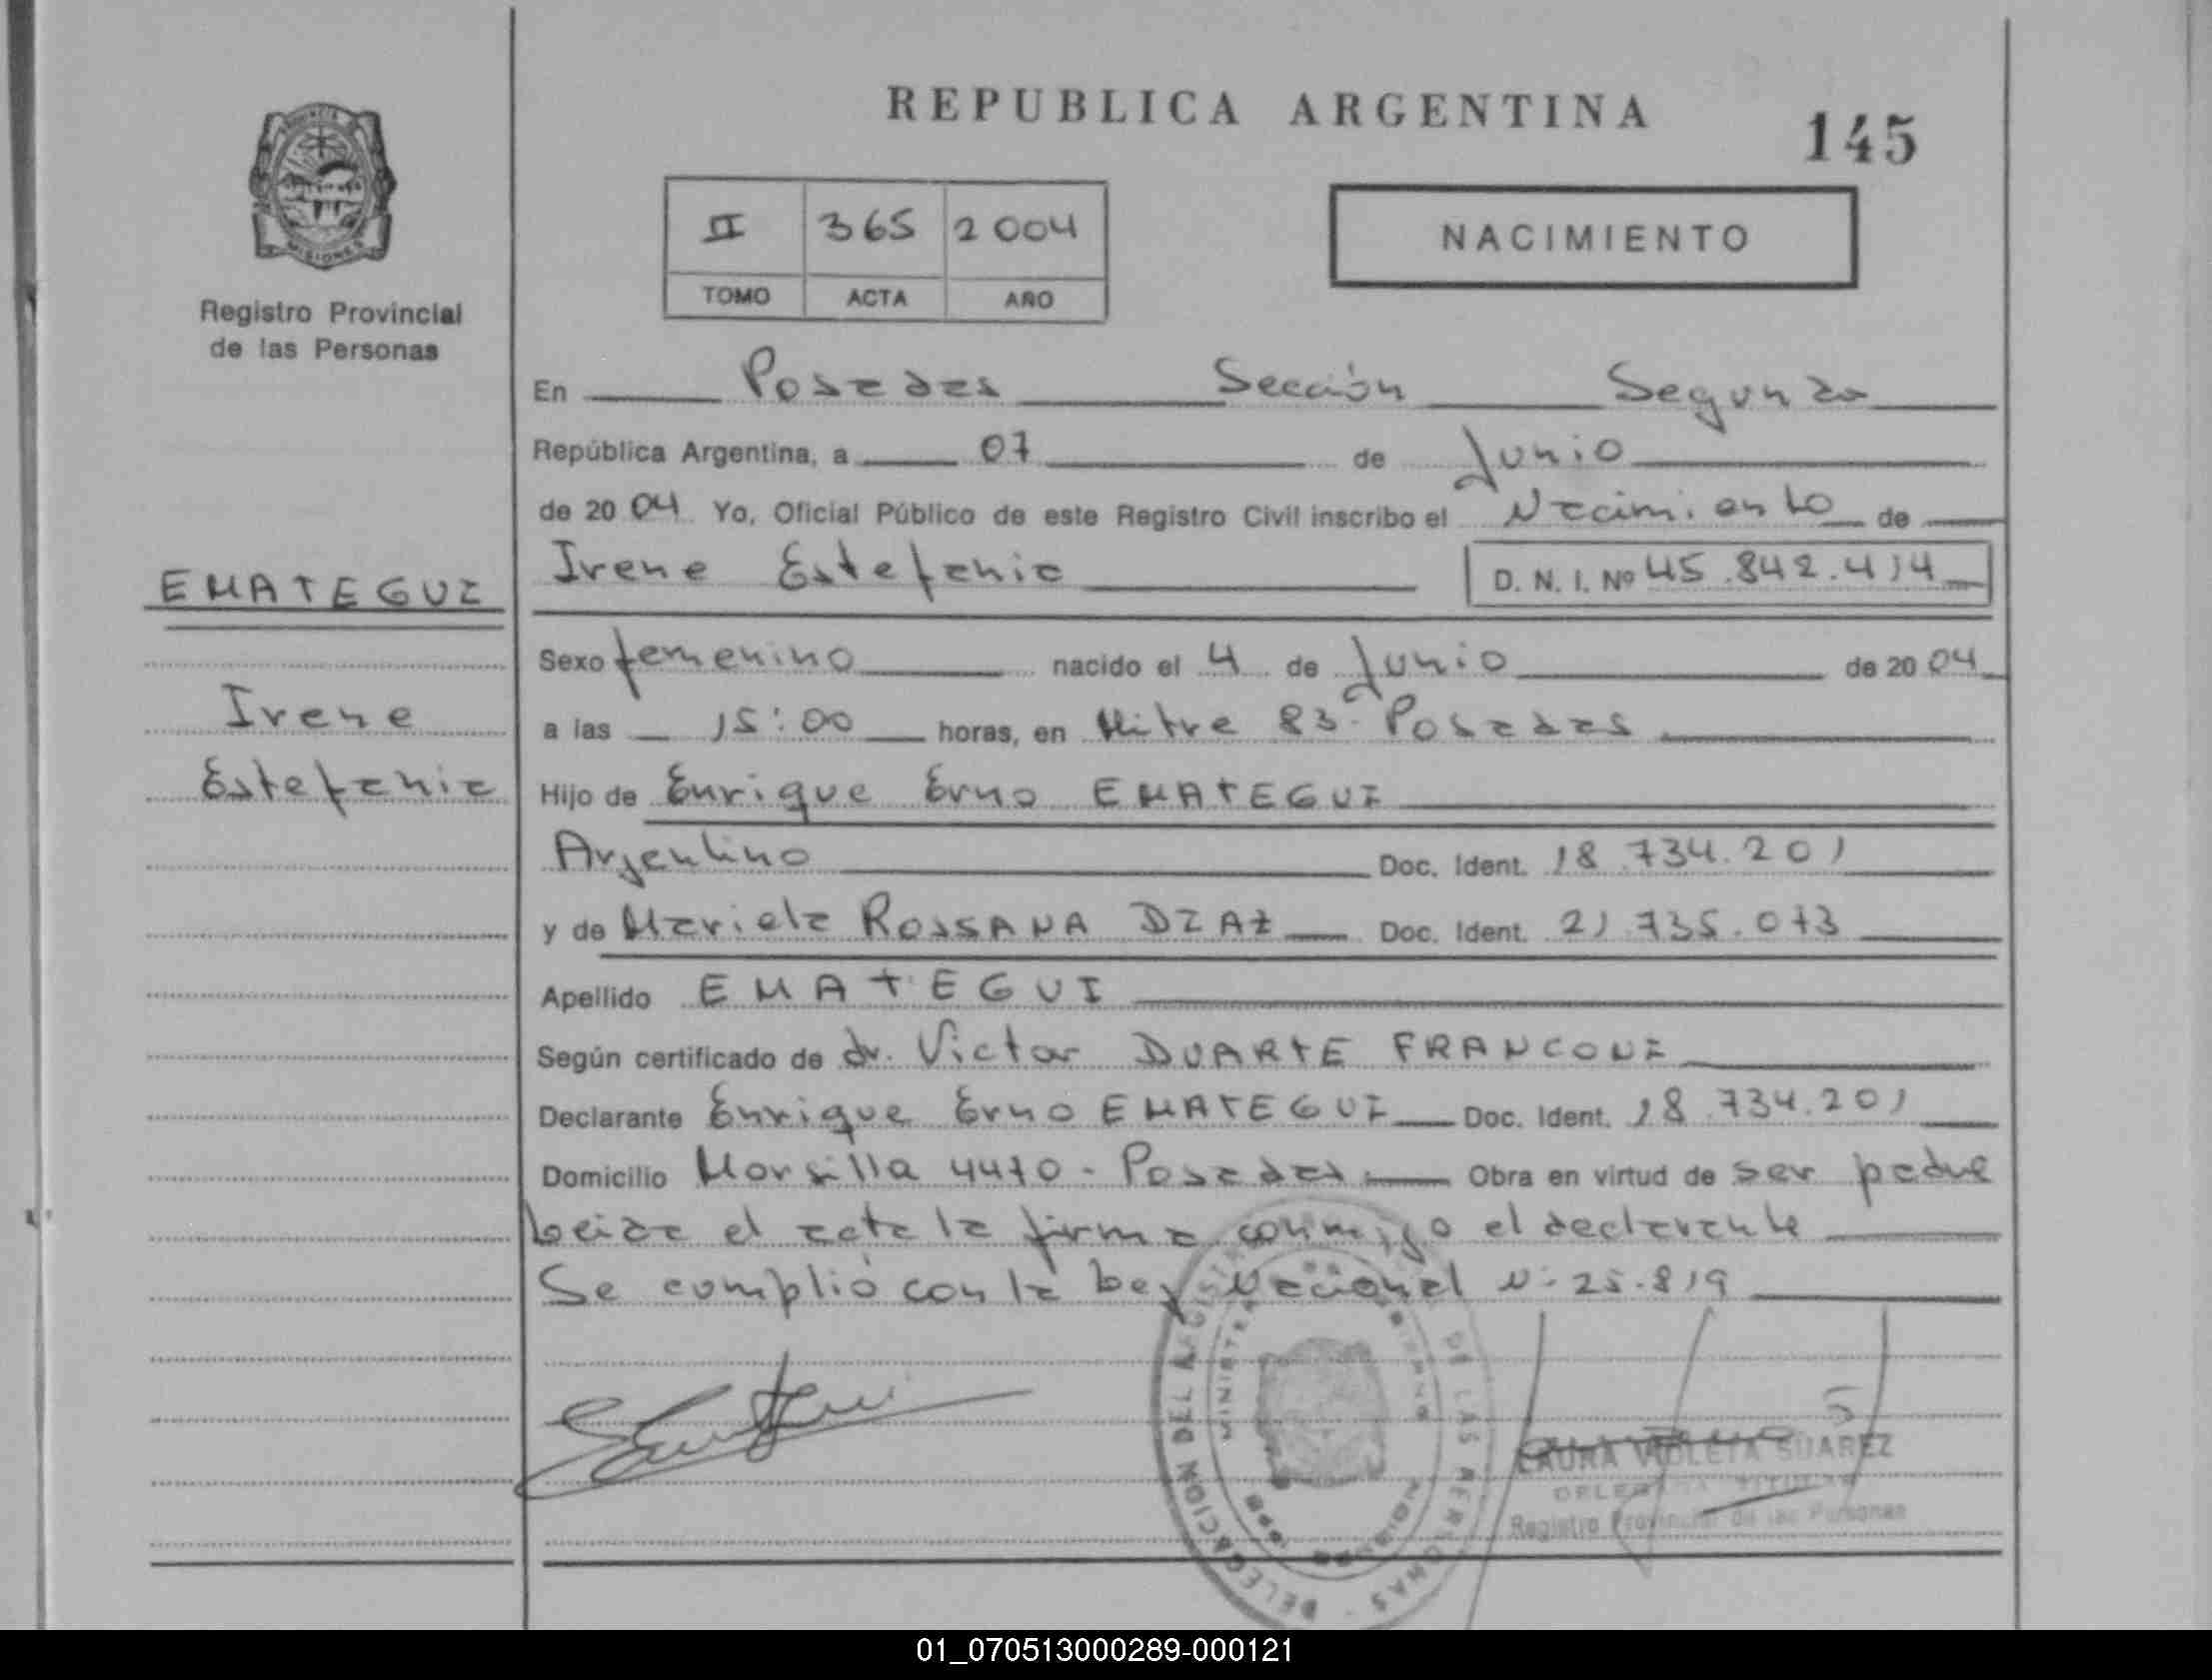 REPUBLICA ARGENTINA
145
PROVINCIA DE
MISIONES
Registro Provincial
de las Personas
II 365 2004
TOMO ACTA AÑO
NACIMIENTO
En Posadas Sección Segunda
República Argentina, a 07 de Junio
de 2004 Yo, Oficial Público de este Registro Civil inscribo el Nacimiento de
Irene Estefania D. N. I. Nº 45.842.414
EMATEGUI
Irene
Estefania
Sexo femenino nacido el 4 de Junio de 2004
a las 15:00 horas, en Mitre 83- Posadas
Hijo de Enrique Erno EMATEGUI
Argentino Doc. Ident. 18.734.201
y de Mariela ROSSANA DIAZ Doc. Ident. 21.735.073
Apellido EMATEGUI
Según certificado de dr. Victor DUARTE FRANCONI
Declarante Enrique Erno EMATEGUI Doc. Ident. 18.734.201
Domicilio Morsilla 4470 - Posadas Obra en virtud de ser padre
Leida el acta la firma conmigo el declarante
Se cumplió con la Ley Nacional Nº 25.819
DELEGACION DEL REGISTRO DE LAS PERSONAS
LAURA VIOLETA SUAREZ
DELEGADA TITULAR
Registro Provincial de las Personas
01_070513000289-000121